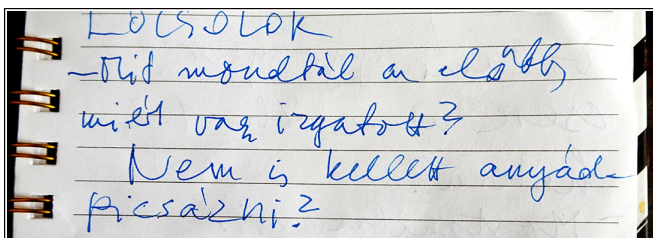 LOCSOLOK
– Mit mondtál az előbb,
miért vag izgatott?
Nem is kellett anyád-
picsázni?